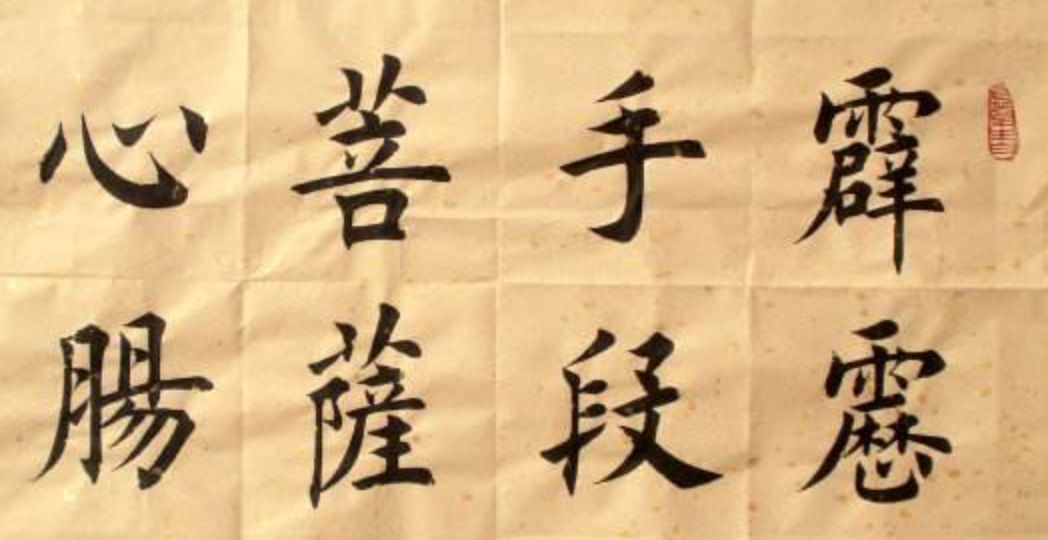 霹靂
手段
菩薩
心腸